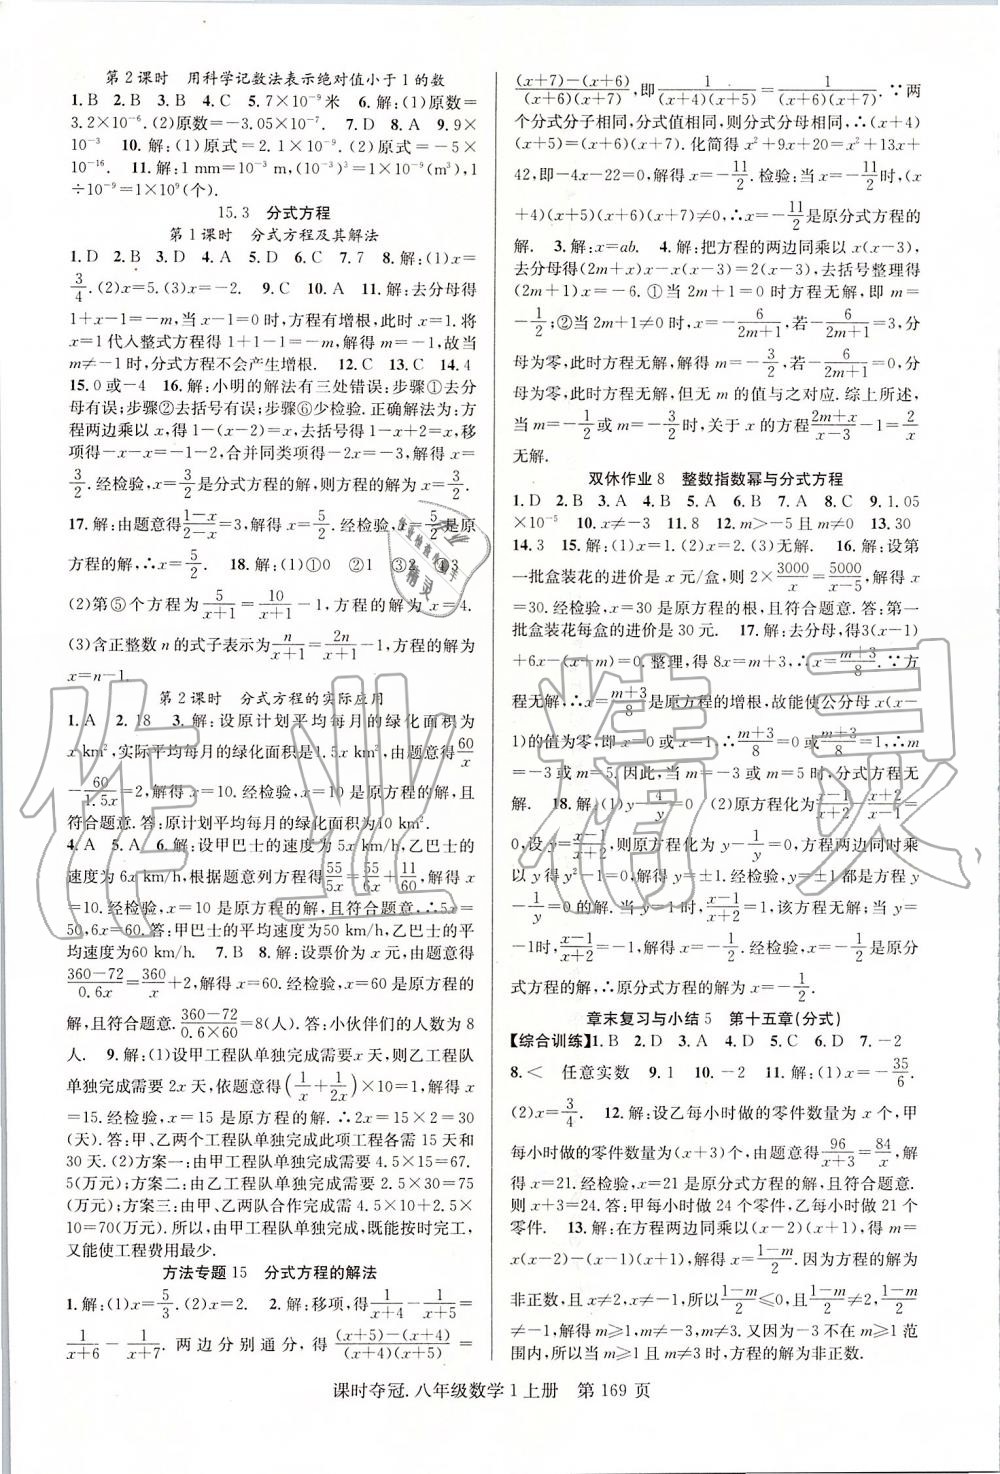 第2课时　用科学记数法表示绝对值小于1的数
1. B　2. B　3. B　4. C　5. 7×10⁻⁹米　6. 解:(1)原数=
3.2×10⁻⁶. (2)原数=-3.05×10⁻⁷.　7. D　8. A　9. 9×
10⁻³　10. 解:(1)原式=2.1×10⁻¹⁰. (2)原式=-5×
10⁻¹⁶.　11. 解:1 mm=10⁻³ m, (10⁻³)³=1×10⁻⁹(m³), 1
÷10⁻⁹=1×10⁹(个).
15.3　分式方程
第1课时　分式方程及其解法
1. D　2. B　3. D　4. A　5. D　6. C　7. 7　8. 解:(1)x=
3/4. (2)x=5. (3)x=-2.　9. C　10. A　11. 解:去分母得
1+x-1=-m, 当x-1=0时,方程有增根,此时x=1. 将
x=1代入整式方程得1+1-1=-m, 解得m=-1, 故当
m≠-1时,分式方程不会产生增根.　12. C　13. C　14. 4
15. 0或-4　16. 解:小明的解法有三处错误:步骤①去分
母有误;步骤②去括号有误;步骤⑥少检验. 正确解法为:方
程两边乘以x, 得1-(x-2)=x, 去括号得1-x+2=x, 移
项得-x-x=-1-2, 合并同类项得-2x=-3, 解得x=
3/2. 经检验, x=3/2是分式方程的解, 故方程的解为x=3/2.
17. 解:由题意得(1-x)/(2-x)=3, 解得x=5/2. 经检验, x=5/2是原
方程的解, ∴x=5/2.　18. 解:(1)①0　②1　③2　④3
(2)第⑤个方程为5/(x+1)=10/(x+1)-1, 方程的解为x=4.
(3)含正整数n的式子表示为n/(x+1)=2n/(x+1)-1, 方程的解为
x=n-1.
第2课时　分式方程的实际应用
1. A　2. 18　3. 解:设原计划平均每月的绿化面积为
x km², 实际平均每月的绿化面积是1.5x km², 由题意得60/x
-60/1.5x=2, 解得x=10. 经检验, x=10是原方程的解, 且
符合题意. 答:原计划平均每月的绿化面积为10 km².
4. A　5. A　6. 解:设甲巴士的速度为5x km/h, 乙巴士的
速度为6x km/h, 根据题意列方程得55/5x=55/6x+11/60, 解得x
=10. 经检验, x=10是原方程的解, 且符合题意, ∴5x=
50, 6x=60. 答:甲巴士的平均速度为50 km/h, 乙巴士的平
均速度为60 km/h.　7. B　8. 解:设票价为x元, 由题意得
(360-72)/0.6x=360/x+2, 解得x=60. 经检验, x=60是原方程的解,
且符合题意, (360-72)/(0.6×60)=8(人). 答:小伙伴们的人数为8
人.　9. 解:(1)设甲工程队单独完成需要x天, 则乙工程队
单独完成需要2x天, 依题意得(1/x+1/2x)×10=1, 解得x
=15. 经检验, x=15是原方程的解. ∴2x=2×15=30
(天). 答:甲、乙两个工程队单独完成此项工程各需15天和
30天. (2)方案一:由甲工程队单独完成需要4.5×15=67.
5(万元);方案二:由乙工程队单独完成需要2.5×30=75
(万元);方案三:由甲、乙两队合作完成需要4.5×10+2.5
×10=70(万元). 所以,由甲工程队单独完成,既能按时完工,
又能使工程费用最少.
方法专题15　分式方程的解法
1. 解:(1)x=5/3. (2)x=2.　2. 解:移项, 得1/(x+4)-1/(x+5)=
1/(x+6)-1/(x+7). 两边分别通分, 得((x+5)-(x+4))/((x+4)(x+5))=
((x+7)-(x+6))/((x+6)(x+7)), 即1/((x+4)(x+5))=1/((x+6)(x+7)). ∵两
个分式分子相同, 分式值相同, 则分式分母相同, ∴(x+4)
(x+5)=(x+6)(x+7). 化简得x²+9x+20=x²+13x+
42, 即-4x-22=0, 解得x=-11/2. 检验:当x=-11/2时, (x
+4)(x+5)(x+6)(x+7)≠0, ∴x=-11/2是原分式方程的
解.　3. 解:x=ab.　4. 解:把方程的两边同乘以x(x-3),
去分母得(2m+x)x-x(x-3)=2(x-3), 去括号整理得
(2m+1)x=-6. ①当2m+1=0时方程无解, 即m=-
1/2; ②当2m+1≠0时, x=-6/(2m+1), 若-6/(2m+1)=3, 分
母为零, 此时方程无解, 解得m=-3/2, 若-6/(2m+1)=0, 分
母为零, 此时方程无解, 但无m的值与之对应. 综上所述,
当m=-1/2或m=-3/2时, 关于x的方程(2m+x)/(x-3)-1=2/x
无解.
双休作业8　整数指数幂与分式方程
1. D　2. B　3. A　4. A　5. B　6. A　7. A　8. C　9. 1.05
×10⁻⁵　10. x≠-3　11. 8　12. m>-5且m≠0　13. 30
14. 3　15. 解:(1)x=4. (2)x=2. (3)无解.　16. 解:设第
一批盒装花的进价是x元/盒, 则2×3000/x=5000/(x-5), 解得x
=30. 经检验, x=30是原方程的根, 且符合题意. 答:第一
批盒装花每盒的进价是30元.　17. 解:去分母, 得3(x-1)
+6x=x+m, 解得8x=m+3, ∴x=(m+3)/8. ∵方
程无解, ∴x=(m+3)/8是原方程的增根, 故能使公分母x(x-
1)的值为零, 即x=0或x=1, ∴(m+3)/8=0或(m+3)/8=1, ∴m
=-3或m=5. 因此, 当m=-3或m=5时, 分式方程无
解.　18. 解:(1)y/4-1/y=0　(2)原方程化为(x-1)/(x+2)-(x+2)/(x-1)=
0, 设y=(x-1)/(x+2), 则原方程化为y-1/y=0, 方程两边同时乘
以y得y²-1=0, 解得y=±1. 经检验, y=±1都是方程y
-1/y=0的解. 当y=1时, (x-1)/(x+2)=1, 该方程无解;当y=
-1时, (x-1)/(x+2)=-1, 解得x=-1/2. 经检验, x=-1/2是原分
式方程的解, ∴原分式方程的解为x=-1/2.
章末复习与小结5　第十五章(分式)
【综合训练】1. B　2. D　3. D　4. A　5. C　6. D　7. -2
8. <　任意实数　9. 1　10. -2　11. 解:(1)x=-35/6.
(2)x=3/4.　12. 解:设乙每小时做的零件数量为x个, 甲
每小时做的零件数量为(x+3)个, 由题意得96/(x+3)=84/x,
解得x=21. 经检验, x=21是原方程的解, 且符合题意.
则x+3=24. 答:甲每小时做24个零件, 乙每小时做21个
零件.　13. 解:在方程两边同乘以(x-2)(x+1), 得m
+2(x-2)=3(x+1), 解得x=(1-m)/2. 因为方程的解为
非正数, 且x≠2, x≠-1, 所以(1-m)/2≤0, 且(1-m)/2≠2, (1-m)/2
≠-1, 解得m≥1, m≠-3, m≠3. 又因为-3不在m≥1范
围内, 所以当m≥1且m≠3时, 方程的解为非正数.
课时夺冠. 八年级数学1上册　第169页
作业精灵